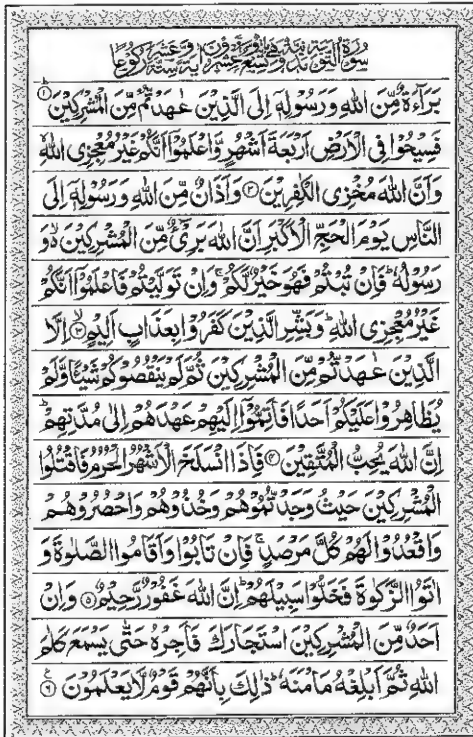 سُوْرَةُ التَّوْبَةِ مَدَنِيَّةٌ وَّهِيَ مِائَةٌ وَّتِسْعٌ وَّعِشْرُوْنَ اٰيَةً وَّسِتَّةَ عَشَرَ رُكُوْعًا
بَرَآءَةٌ مِّنَ اللّٰهِ وَرَسُوْلِهٖۤ اِلَى الَّذِيْنَ عٰهَدْتُّمْ مِّنَ الْمُشْرِكِيْنَ ؕ﴿۱﴾
فَسِيْحُوْا فِی الْاَرْضِ اَرْبَعَةَ اَشْهُرٍ وَّاعْلَمُوْۤا اَنَّكُمْ غَيْرُ مُعْجِزِی اللّٰهِ ۙ
وَاَنَّ اللّٰهَ مُخْزِی الْكٰفِرِيْنَ ﴿۲﴾ وَاَذَانٌ مِّنَ اللّٰهِ وَرَسُوْلِهٖۤ اِلَى
النَّاسِ يَوْمَ الْحَجِّ الْاَكْبَرِ اَنَّ اللّٰهَ بَرِیْٓءٌ مِّنَ الْمُشْرِكِيْنَ ۙ۬ وَ
رَسُوْلُهٗ ؕ فَاِنْ تُبْتُمْ فَهُوَ خَيْرٌ لَّكُمْ ۚ وَاِنْ تَوَلَّيْتُمْ فَاعْلَمُوْۤا اَنَّكُمْ
غَيْرُ مُعْجِزِی اللّٰهِ ؕ وَبَشِّرِ الَّذِيْنَ كَفَرُوْا بِعَذَابٍ اَلِيْمٍ ۙ﴿۳﴾ اِلَّا
الَّذِيْنَ عٰهَدْتُّمْ مِّنَ الْمُشْرِكِيْنَ ثُمَّ لَمْ يَنْقُصُوْكُمْ شَيْـًٔا وَّلَمْ
يُظَاهِرُوْا عَلَيْكُمْ اَحَدًا فَاَتِمُّوْۤا اِلَيْهِمْ عَهْدَهُمْ اِلٰى مُدَّتِهِمْ ؕ
اِنَّ اللّٰهَ يُحِبُّ الْمُتَّقِيْنَ ﴿۴﴾ فَاِذَا انْسَلَخَ الْاَشْهُرُ الْحُرُمُ فَاقْتُلُوا
الْمُشْرِكِيْنَ حَيْثُ وَجَدْتُّمُوْهُمْ وَخُذُوْهُمْ وَاحْصُرُوْهُمْ
وَاقْعُدُوْا لَهُمْ كُلَّ مَرْصَدٍ ۚ فَاِنْ تَابُوْا وَاَقَامُوا الصَّلٰوةَ وَ
اٰتَوُا الزَّكٰوةَ فَخَلُّوْا سَبِيْلَهُمْ ؕ اِنَّ اللّٰهَ غَفُوْرٌ رَّحِيْمٌ ﴿۵﴾ وَاِنْ
اَحَدٌ مِّنَ الْمُشْرِكِيْنَ اسْتَجَارَكَ فَاَجِرْهُ حَتّٰى يَسْمَعَ كَلٰمَ
اللّٰهِ ثُمَّ اَبْلِغْهُ مَاْمَنَهٗ ؕ ذٰلِكَ بِاَنَّهُمْ قَوْمٌ لَّا يَعْلَمُوْنَ ﴿۶﴾ ع